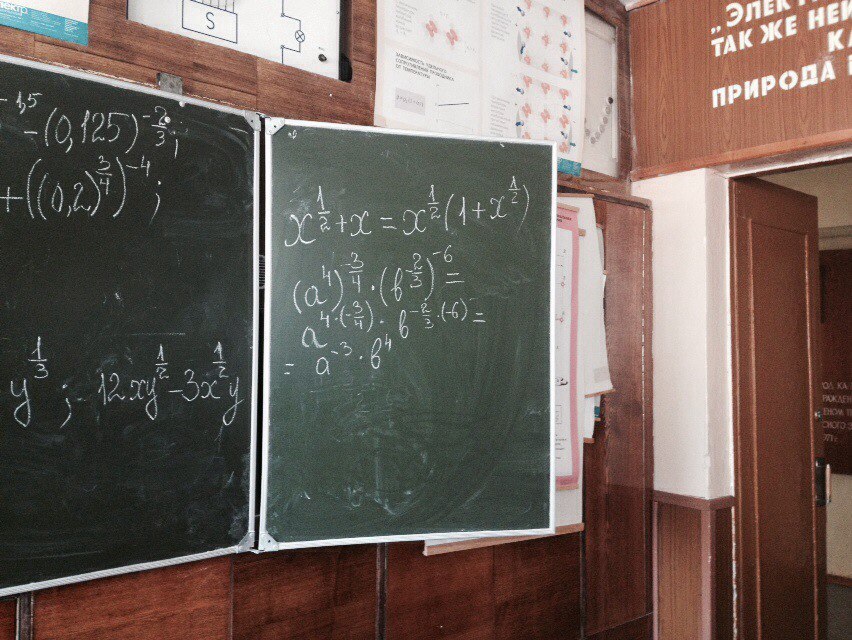 -1,5
-(0,125)^{-\frac{2}{3}};
+((0,2)^{\frac{3}{4}})^{-4};
y^{\frac{1}{3}}; 12xy^{\frac{1}{2}}-3x^{\frac{1}{2}}y
x^{\frac{1}{2}}+x=x^{\frac{1}{2}}(1+x^{\frac{1}{2}})
(a^{4})^{-\frac{3}{4}}·(b^{-\frac{2}{3}})^{-6}=
a^{4·(-\frac{3}{4})}·b^{-\frac{2}{3}·(-6)}=
=a^{-3}·b^{4}
S
ЗАВИСИМОСТЬ УДЕЛЬНОГО
СОПРОТИВЛЕНИЯ ПРОВОДНИКА
ОТ ТЕМПЕРАТУРЫ
„ЭЛЕКТ
ТАК ЖЕ НЕИ
ПРИРОДА